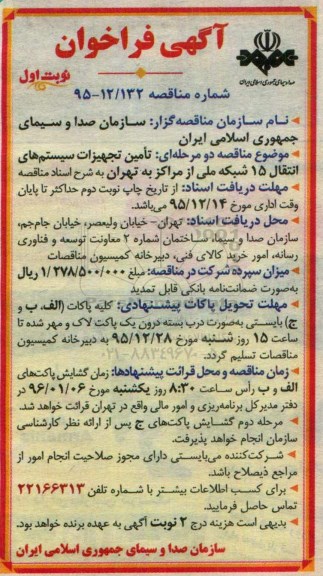 آگهی فراخوان
صدا و سیمای جمهوری اسلامی ایران
نوبت اول
شماره مناقصه ۹۵-۱۲/۱۳۲
نام سازمان مناقصه‌گزار: سازمان صدا و سیمای
جمهوری اسلامی ایران
موضوع مناقصه دو مرحله‌ای: تأمین تجهیزات سیستم‌های
انتقال ۱۵ شبکه ملی از مراکز به تهران به شرح اسناد مناقصه
مهلت دریافت اسناد: از تاریخ چاپ نوبت دوم حداکثر تا پایان
وقت اداری مورخ ۹۵/۱۲/۱۴ می‌باشد.
محل دریافت اسناد: تهران- خیابان ولیعصر، خیابان جام‌جم،
سازمان صدا و سیما، ساختمان شماره ۲ معاونت توسعه و فناوری
رسانه، امور خرید کالای فنی، دبیرخانه کمیسیون مناقصات
میزان سپرده شرکت در مناقصه: مبلغ ۱/۲۷۸/۵۰۰/۰۰۰ ریال
به‌صورت ضمانت‌نامه بانکی قابل تمدید
مهلت تحویل پاکات پیشنهادی: کلیه پاکات (الف، ب و
ج) بایستی به‌صورت درب بسته درون یک پاکت لاک و مهر شده تا
ساعت ۱۵ روز شنبه مورخ ۹۵/۱۲/۲۸ به دبیرخانه کمیسیون
مناقصات تسلیم گردد.
زمان مناقصه و محل قرائت پیشنهادها: زمان گشایش پاکت‌های
الف و ب رأس ساعت ۸:۳۰ روز یکشنبه مورخ ۹۶/۰۱/۰۶ در
دفتر مدیرکل برنامه‌ریزی و امور مالی واقع در تهران قرائت خواهد شد.
مرحله دوم گشایش پاکت‌های ج پس از ارائه نظر کارشناسی
سازمان انجام خواهد پذیرفت.
شرکت‌کننده می‌بایستی دارای مجوز صلاحیت انجام امور از
مراجع ذیصلاح باشد.
برای کسب اطلاعات بیشتر با شماره تلفن ۲۲۱۶۶۳۱۳
تماس حاصل فرمایید.
بدیهی است هزینه درج ۲ نوبت آگهی به عهده برنده خواهد بود.
سازمان صدا و سیمای جمهوری اسلامی ایران